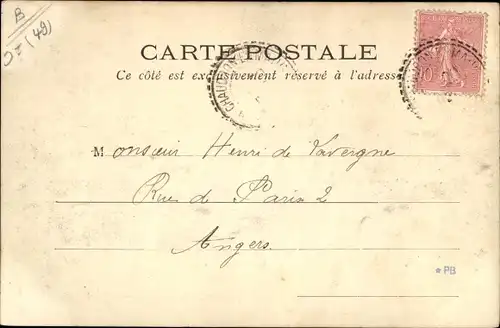 B
DT (49)
CARTE POSTALE
Ce côté est exclusivement réservé à l'adresse
10
Monsieur Henri de Lavergne
Rue de Paris 2
Angers.
*PB